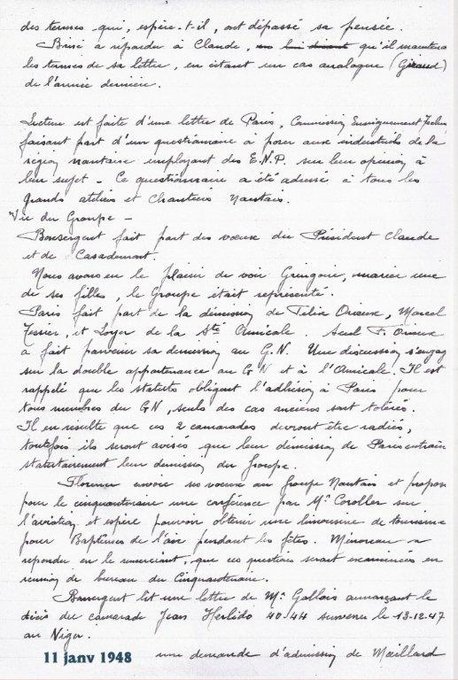 des termes qui, espère-t-il, ont dépassé sa pensée.
Brisé a répondu à Claude, qu'il maintient
les termes de sa lettre, en citant un cas analogue (Giraud)
de l'année dernière.
Lecture est faite d'une lettre de Paris, Commission Enseignement
faisant part d'un questionnaire à poser aux industriels de la
région nantaise employant des E.N.P. sur leur opinion à
leur sujet - Ce questionnaire a été adressé à tous les
grands ateliers et Chantiers Nantais.
Vie du Groupe -
Bonsergent fait part des vœux du Président Claude
et de Casademont.
Nous avons eu le plaisir de voir Gringoire, marier une
de ses filles, le Groupe était représenté.
Paris fait part de la démission de Félix Orieux, Marcel
Tessier, et Loyer de la Sté Amicale. Seul F. Orieux
a fait parvenir sa démission au G.N. Une discussion s'engage
sur la double appartenance au G.N et à l'Amicale. Il est
rappelé que les statuts obligent l'adhésion à Paris pour
tous membres du GN, seuls des cas anciens sont tolérés.
Il en résulte que ces 2 camarades devront être radiés,
toutefois ils seront avisés que leur démission de Paris entraîne
statutairement leur démission du Groupe.
envoie ses vœux au Groupe Nantais et propose
pour le cinquantenaire une conférence par Mr Coroller sur
l'aviation et espère pouvoir obtenir une limousine de tourisme
pour Baptêmes de l'air pendant les fêtes. a
répondu en le remerciant, que ces questions seront examinées en
réunion de bureau du Cinquantenaire.
Bonsergent lit une lettre de Mr Gallais annonçant le
décès du camarade Jean 40-44 survenu le 13-12-47
au Niger.
une demande d'admission de Maillard
11 janv 1948